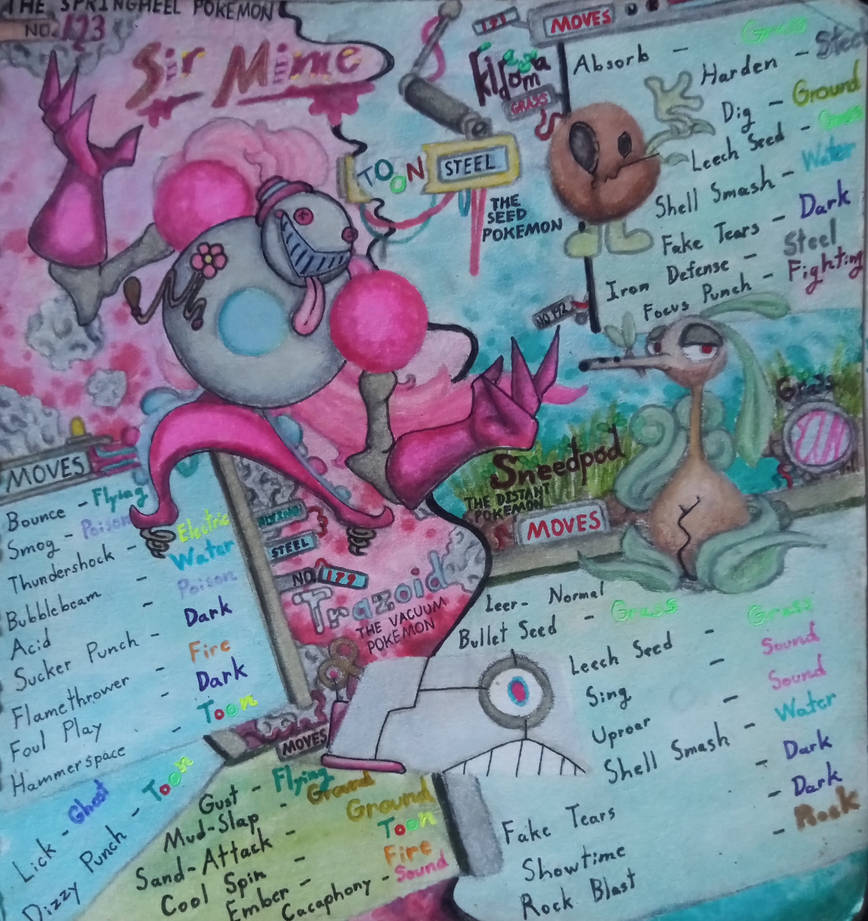 THE SPRINGHEEL POKEMON
NO. 123
Sir Mime
TOON STEEL
MOVES
Bounce - Flying
Smog - Poison
Thundershock - Electric
Bubblebeam - Water
Acid - Poison
Sucker Punch - Dark
Flamethrower - Fire
Foul Play - Dark
Hammerspace - Toon
Lick - Ghost
Dizzy Punch - Toon
GRASS
THE
SEED
POKEMON
MOVES
Absorb - Grass
Harden - Steel
Dig - Ground
Leech Seed - Grass
Shell Smash - Water
Fake Tears - Dark
Iron Defense - Steel
Focus Punch - Fighting
Grass
Sneedpod
THE DISTANT
POKEMON
MOVES
Leer- Normal
Bullet Seed - Grass
Leech Seed - Grass
Sing - Sound
Uproar - Sound
Shell Smash - Water
Fake Tears - Dark
Showtime - Dark
Rock Blast - Rock
STEEL
NO. 129
Trazoid
THE VACUUM
POKEMON
MOVES
Gust - Flying
Mud-Slap - Ground
Sand-Attack - Ground
Cool Spin - Toon
Ember - Fire
Cacaphony - Sound